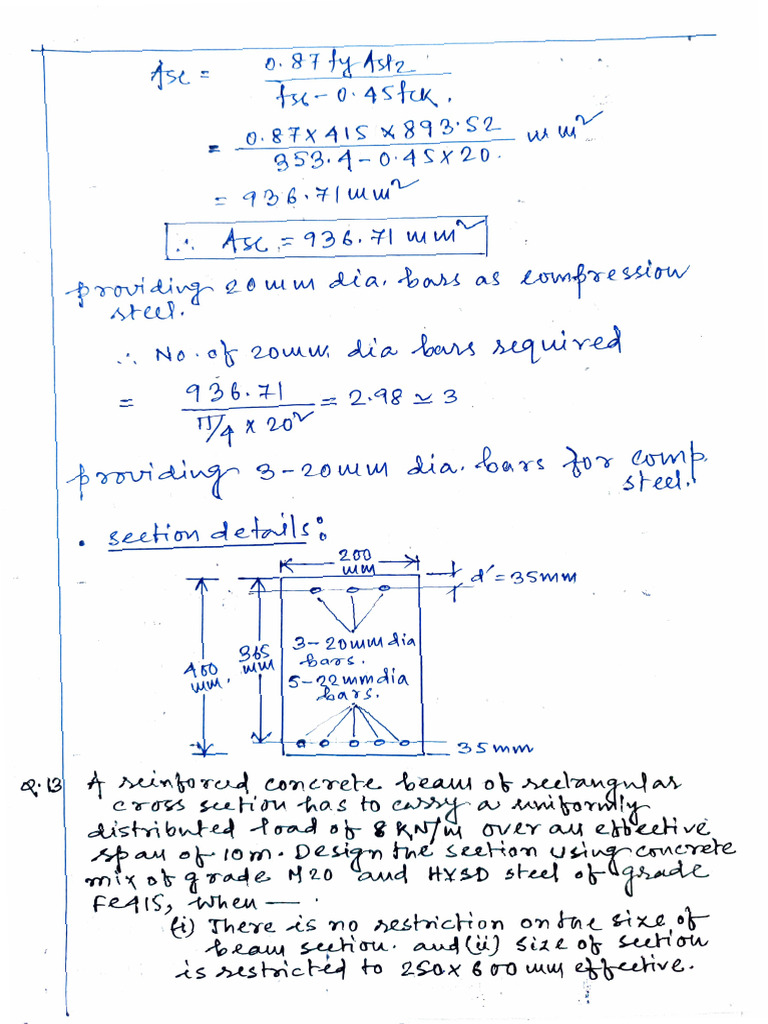 Asc = 0.87 fy Ast2 / fsc - 0.45 fck.
= 0.87 × 415 × 893.52 / 353.4 - 0.45 × 20. mm²
= 936.71 mm²
∴ Asc = 936.71 mm²
providing 20 mm dia. bars as compression
steel.
∴ No. of 20mm dia bars required
= 936.71 / π/4 × 20² = 2.98 ≃ 3
providing 3-20mm dia. bars for comp.
steel.
• section details:
200
mm
d' = 35mm
400
mm.
365
mm
3-20mm dia
bars.
5-22mm dia
bars.
35mm
Q.13 A reinforced concrete beam of rectangular
cross section has to carry a uniformly
distributed load of 8 KN/m over an effective
span of 10m. Design the section using concrete
mix of grade M20 and HYSD steel of grade
Fe415, when —
(i) There is no restriction on the size of
beam section. and (ii) size of section
is restricted to 250 × 600 mm effective.